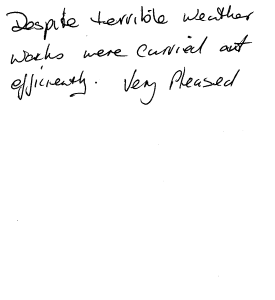 Despite terrible weather
works were carried out
efficiently. Very Pleased